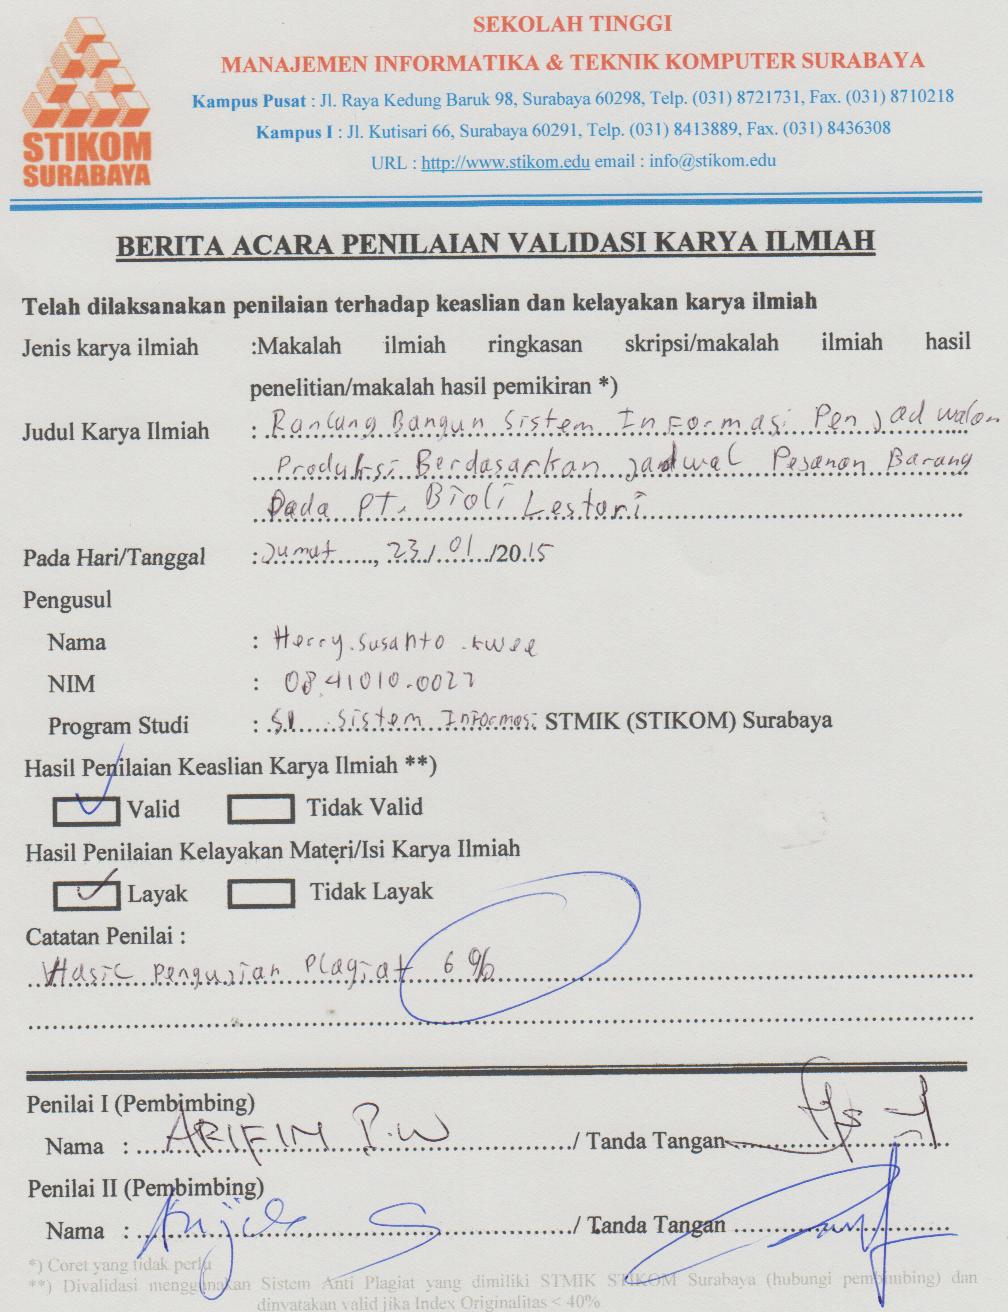 STIKOM
SURABAYA
SEKOLAH TINGGI
MANAJEMEN INFORMATIKA & TEKNIK KOMPUTER SURABAYA
Kampus Pusat : Jl. Raya Kedung Baruk 98, Surabaya 60298, Telp. (031) 8721731, Fax. (031) 8710218
Kampus I : Jl. Kutisari 66, Surabaya 60291, Telp. (031) 8413889, Fax. (031) 8436308
URL : http://www.stikom.edu email : info@stikom.edu
BERITA ACARA PENILAIAN VALIDASI KARYA ILMIAH
Telah dilaksanakan penilaian terhadap keaslian dan kelayakan karya ilmiah
Jenis karya ilmiah :Makalah ilmiah ringkasan skripsi/makalah ilmiah hasil
penelitian/makalah hasil pemikiran *)
Judul Karya Ilmiah : Rancang Bangun Sistem Informasi Penjadwalan
Produksi Berdasarkan Jadwal Pesanan Barang
Pada PT. Bioli Lestari
Pada Hari/Tanggal : Jumat, 23/01/2015
Pengusul
Nama : Herry.Susanto.Kwee
NIM : 08.41010.0027
Program Studi : S1 Sistem Informasi STMIK (STIKOM) Surabaya
Hasil Penilaian Keaslian Karya Ilmiah **)
Valid Tidak Valid
Hasil Penilaian Kelayakan Materi/Isi Karya Ilmiah
Layak Tidak Layak
Catatan Penilai :
Hasil Pengujian Plagiat 6%
Penilai I (Pembimbing)
Nama : ARIFIN P.W / Tanda Tangan
Penilai II (Pembimbing)
Nama : / Tanda Tangan
*) Coret yang tidak perlu
**) Divalidasi menggunakan Sistem Anti Plagiat yang dimiliki STMIK STIKOM Surabaya (hubungi pembimbing) dan
dinyatakan valid jika Index Originalitas < 40%